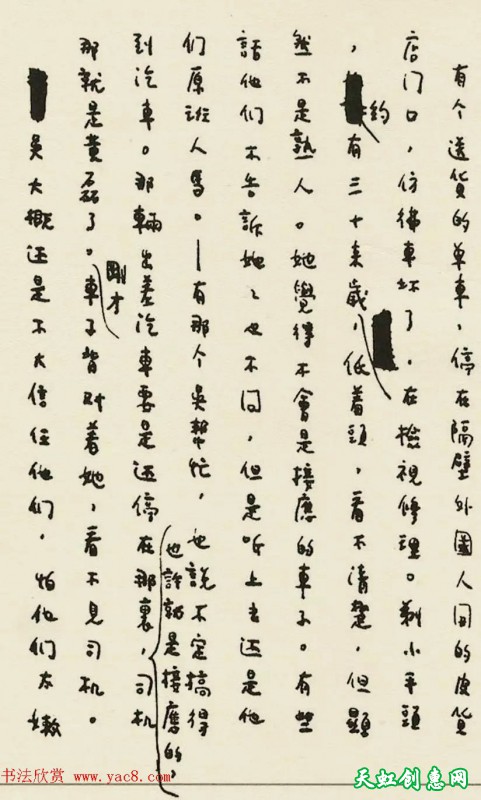 有个送货的单車，停在隔壁外國人開的皮货
店门口，仿彿車坏了，在檢視修理。剃小平頭
，約有三十来歲，低着頭，看不清楚，但顯
然不是熟人。她覺得不會是接應的車子。有些
話他们不告訴她，她也不问，但是听上去还是他
们原班人馬。—有那个吳幫忙，也說不定搞得
到汽車。那輛出差汽車要是还停在那裏，也許就是接應的，司机
那就是黄磊了。剛才車子背对着她，看不見司机。
吳大概还是不大信任他们，怕他们太嫩
书法欣赏 www.yac8.com
天虹创意网